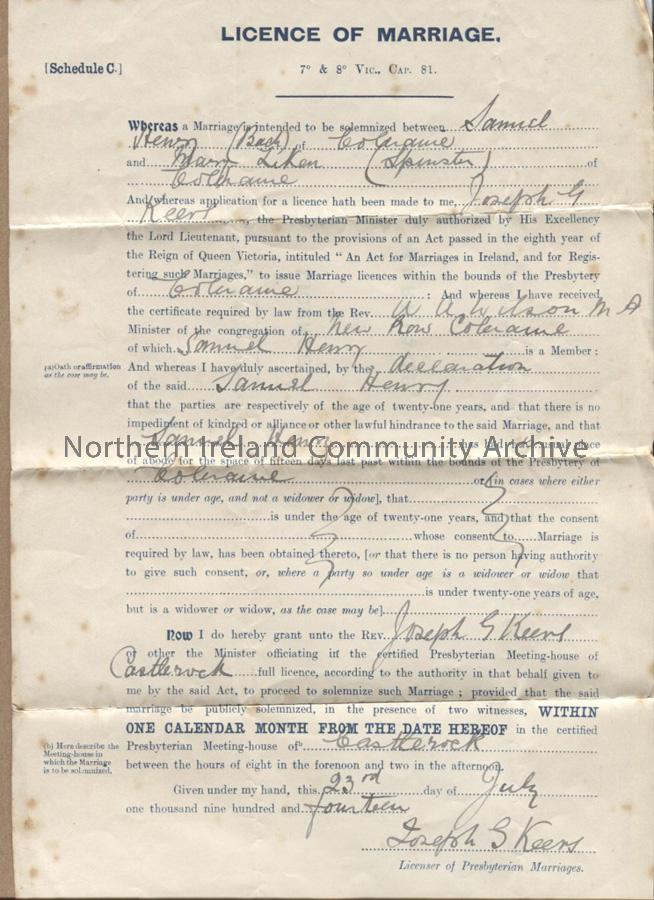 LICENCE OF MARRIAGE.
[Schedule C.]
7º & 8º Vic., Cap. 81.
Whereas a Marriage is intended to be solemnized between Samuel
Henry (Bach) of Coleraine
and Mary Liken (Spinster) of
Coleraine
And whereas application for a licence hath been made to me, Joseph G
Keers, the Presbyterian Minister duly authorized by His Excellency
the Lord Lieutenant, pursuant to the provisions of an Act passed in the eighth year of
the Reign of Queen Victoria, intituled “ An Act for Marriages in Ireland, and for Regis-
tering such Marriages,” to issue Marriage licences within the bounds of the Presbytery
of Coleraine : And whereas I have received
the certificate required by law from the Rev. Wilson M A
Minister of the congregation of New Row Coleraine
of which Samuel Henry is a Member :
(a) Oath or affirmation
as the case may be.
And whereas I have duly ascertained, by the declaration
of the said Samuel Henry
that the parties are respectively of the age of twenty-one years, and that there is no
impediment of kindred or alliance or other lawful hindrance to the said Marriage, and that
Samuel Henry has had his usual place
Northern Ireland Community Archive
of abode for the space of fifteen days last past within the bounds of the Presbytery of
Coleraine or [in cases where either
party is under age, and not a widower or widow], that
is under the age of twenty-one years, and that the consent
of whose consent to Marriage is
required by law, has been obtained thereto, [or that there is no person having authority
to give such consent, or, where a party so under age is a widower or widow that
is under twenty-one years of age,
but is a widower or widow, as the case may be].
Now I do hereby grant unto the Rev. Joseph G Keers
or other the Minister officiating in the certified Presbyterian Meeting-house of
Castlerock full licence, according to the authority in that behalf given to
me by the said Act, to proceed to solemnize such Marriage ; provided that the said
marriage be publicly solemnized, in the presence of two witnesses, WITHIN
ONE CALENDAR MONTH FROM THE DATE HEREOF in the certified
(b) Here describe the
Meeting-house in
which the Marriage
is to be solemnized.
Presbyterian Meeting-house of Castlerock
between the hours of eight in the forenoon and two in the afternoon.
Given under my hand, this 23rd day of July
one thousand nine hundred and fourteen
Joseph G Keers
Licenser of Presbyterian Marriages.